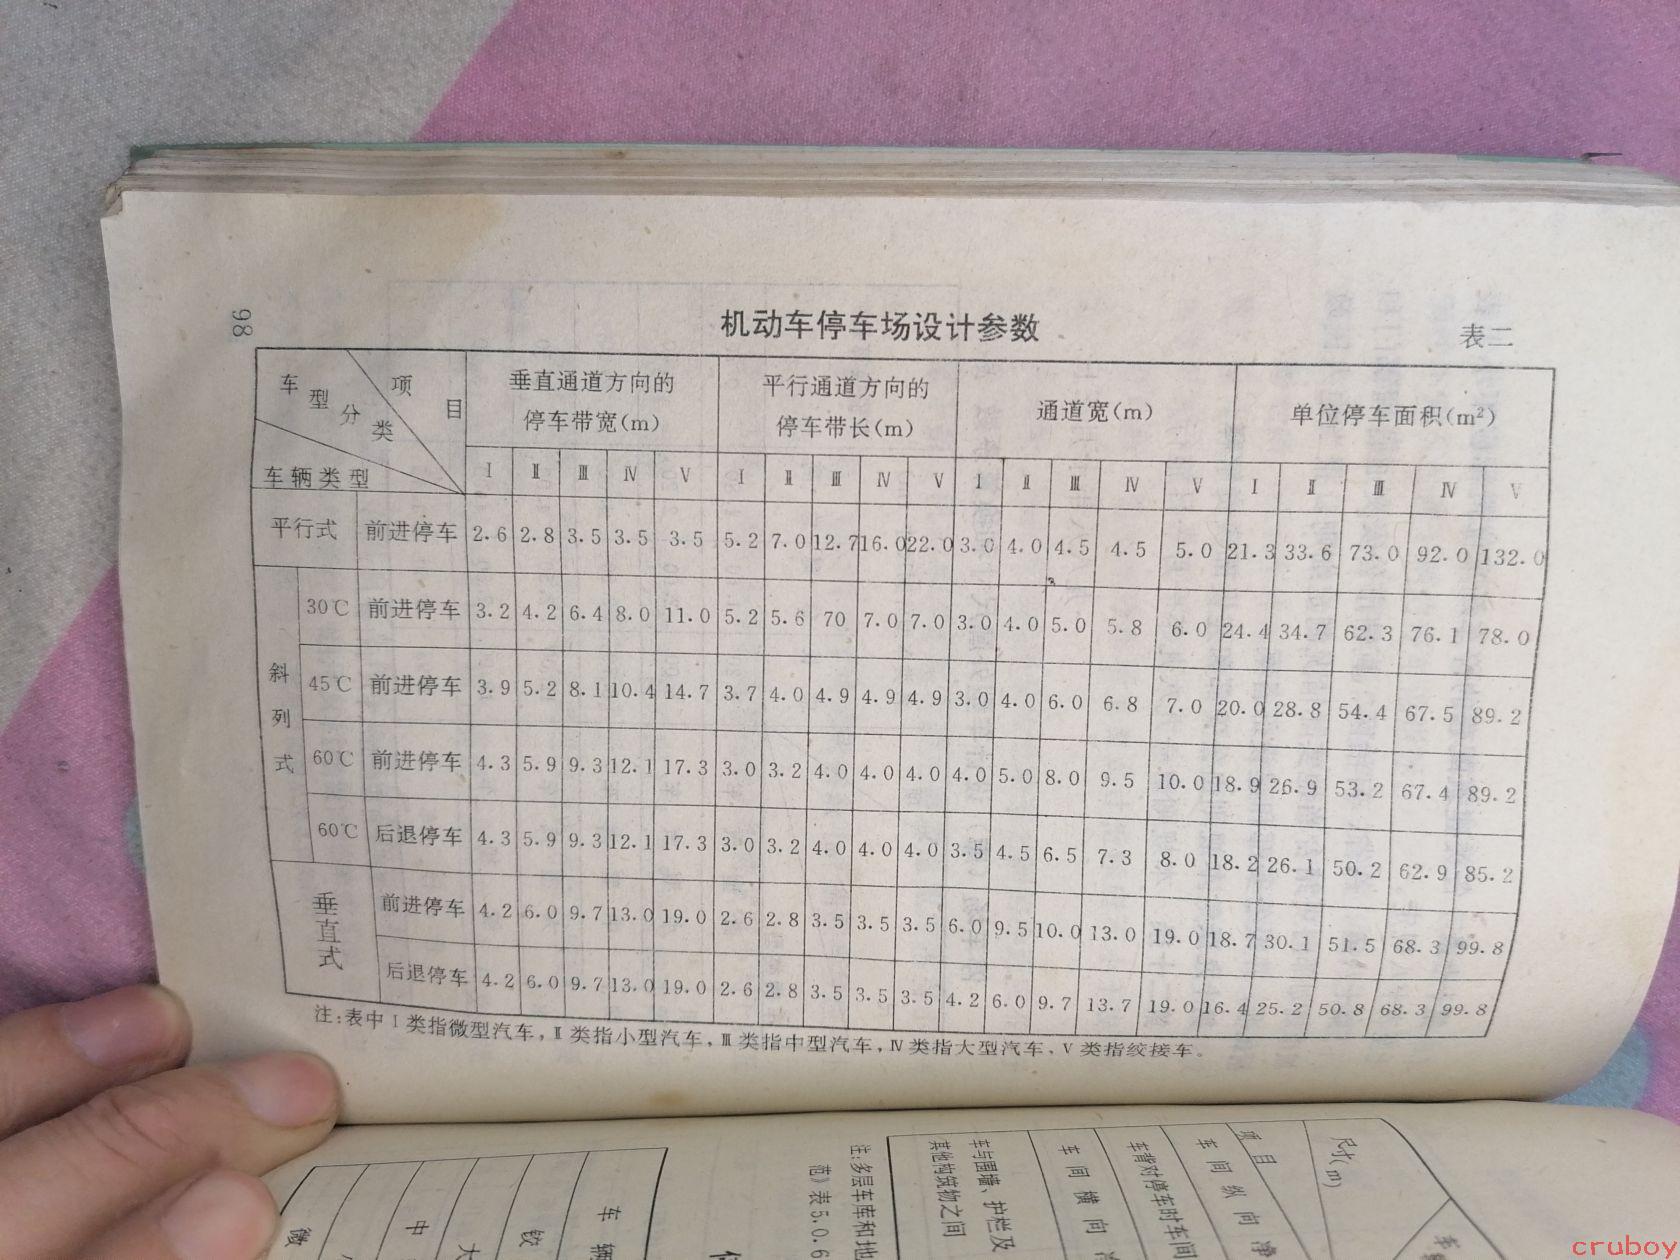 98
机动车停车场设计参数
表二
车型分类 项目 车辆类型 垂直通道方向的停车带宽(m) 平行通道方向的停车带长(m) 通道宽(m) 单位停车面积(m²)
Ⅰ Ⅱ Ⅲ Ⅳ Ⅴ Ⅰ Ⅱ Ⅲ Ⅳ Ⅴ Ⅰ Ⅱ Ⅲ Ⅳ Ⅴ Ⅰ Ⅱ Ⅲ Ⅳ Ⅴ
平行式 前进停车 2.6 2.8 3.5 3.5 3.5 5.2 7.0 12.7 16.0 22.0 3.0 4.0 4.5 4.5 5.0 21.3 33.6 73.0 92.0 132.0
斜列式 30℃ 前进停车 3.2 4.2 6.4 8.0 11.0 5.2 5.6 70 7.0 7.0 3.0 4.0 5.0 5.8 6.0 24.4 34.7 62.3 76.1 78.0
45℃ 前进停车 3.9 5.2 8.1 10.4 14.7 3.7 4.0 4.9 4.9 4.9 3.0 4.0 6.0 6.8 7.0 20.0 28.8 54.4 67.5 89.2
60℃ 前进停车 4.3 5.9 9.3 12.1 17.3 3.0 3.2 4.0 4.0 4.0 4.0 5.0 8.0 9.5 10.0 18.9 26.9 53.2 67.4 89.2
60℃ 后退停车 4.3 5.9 9.3 12.1 17.3 3.0 3.2 4.0 4.0 4.0 3.5 4.5 6.5 7.3 8.0 18.2 26.1 50.2 62.9 85.2
垂直式 前进停车 4.2 6.0 9.7 13.0 19.0 2.6 2.8 3.5 3.5 3.5 6.0 9.5 10.0 13.0 19.0 18.7 30.1 51.5 68.3 99.8
后退停车 4.2 6.0 9.7 13.0 19.0 2.6 2.8 3.5 3.5 3.5 4.2 6.0 9.7 13.7 19.0 16.4 25.2 50.8 68.3 99.8
注:表中Ⅰ类指微型汽车,Ⅱ类指小型汽车,Ⅲ类指中型汽车,Ⅳ类指大型汽车,Ⅴ类指绞接车。
尺寸(m)
项目
车间纵向净
车背对停车时车间
车间横向
车与围墙、护栏及
其他构筑物之间
注:多层车库和地
范》表5.0.6
车辆
铰
大
中
微
cruboy